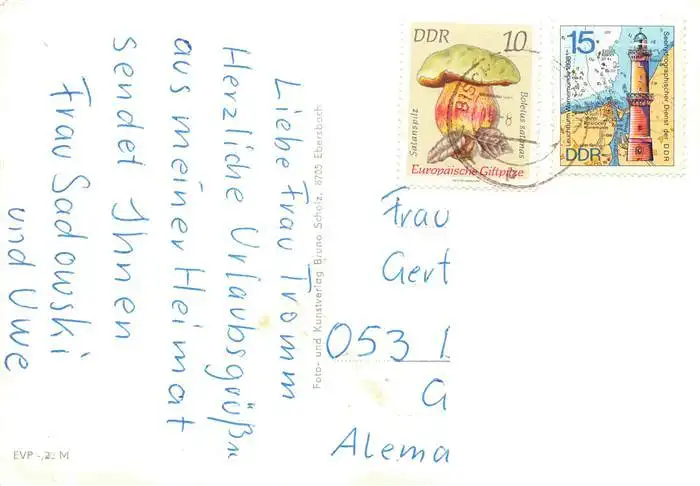 Liebe Frau Tromm
Herzliche Urlaubsgrüßn
aus meiner Heimat
sendet Ihnen
Frau Sadowski
und Uwe
Foto- und Kunstverlag Bruno Scholz, 8705 Ebersbach
EVP -,2 M
DDR 10
Satanspilz
Boletus satanas
Europäische Giftpilze
15
Leuchtturm Warnemünde 1898
Seehydrographischer Dienst der DDR
DDR
Frau
Gert
053
G
Alema